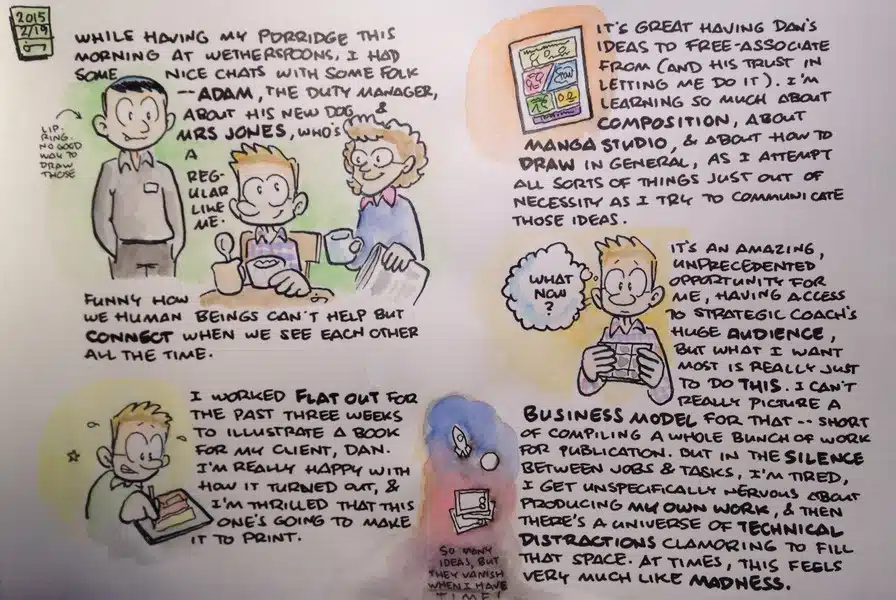 2015
2/19
WHILE HAVING MY PORRIDGE THIS
MORNING AT WETHERSPOONS, I HAD
SOME NICE CHATS WITH SOME FOLK
-- ADAM, THE DUTY MANAGER,
ABOUT HIS NEW DOG, &
MRS JONES, WHO'S
A
REG-
ULAR
LIKE
ME.
LIP-
RING.
NO GOOD
WAY TO
DRAW
THOSE
FUNNY HOW
WE HUMAN BEINGS CAN'T HELP BUT
CONNECT WHEN WE SEE EACH OTHER
ALL THE TIME.
I WORKED FLAT OUT FOR
THE PAST THREE WEEKS
TO ILLUSTRATE A BOOK
FOR MY CLIENT, DAN.
I'M REALLY HAPPY WITH
HOW IT TURNED OUT, &
I'M THRILLED THAT THIS
ONE'S GOING TO MAKE
IT TO PRINT.
SO MANY
IDEAS, BUT
THEY VANISH
WHEN I HAVE
TIME!
IT'S GREAT HAVING DAN'S
IDEAS TO FREE-ASSOCIATE
FROM (AND HIS TRUST IN
LETTING ME DO IT). I'M
LEARNING SO MUCH ABOUT
COMPOSITION, ABOUT
MANGA STUDIO, & ABOUT HOW TO
DRAW IN GENERAL, AS I ATTEMPT
ALL SORTS OF THINGS JUST OUT OF
NECESSITY AS I TRY TO COMMUNICATE
THOSE IDEAS.
WHAT
NOW
?
IT'S AN AMAZING,
UNPRECEDENTED
OPPORTUNITY FOR
ME, HAVING ACCESS
TO STRATEGIC COACH'S
HUGE AUDIENCE,
BUT WHAT I WANT
MOST IS REALLY JUST
TO DO THIS. I CAN'T
REALLY PICTURE A
BUSINESS MODEL FOR THAT -- SHORT
OF COMPILING A WHOLE BUNCH OF WORK
FOR PUBLICATION. BUT IN THE SILENCE
BETWEEN JOBS & TASKS, I'M TIRED,
I GET UNSPECIFICALLY NERVOUS ABOUT
PRODUCING MY OWN WORK, & THEN
THERE'S A UNIVERSE OF TECHNICAL
DISTRACTIONS CLAMORING TO FILL
THAT SPACE. AT TIMES, THIS FEELS
VERY MUCH LIKE MADNESS.